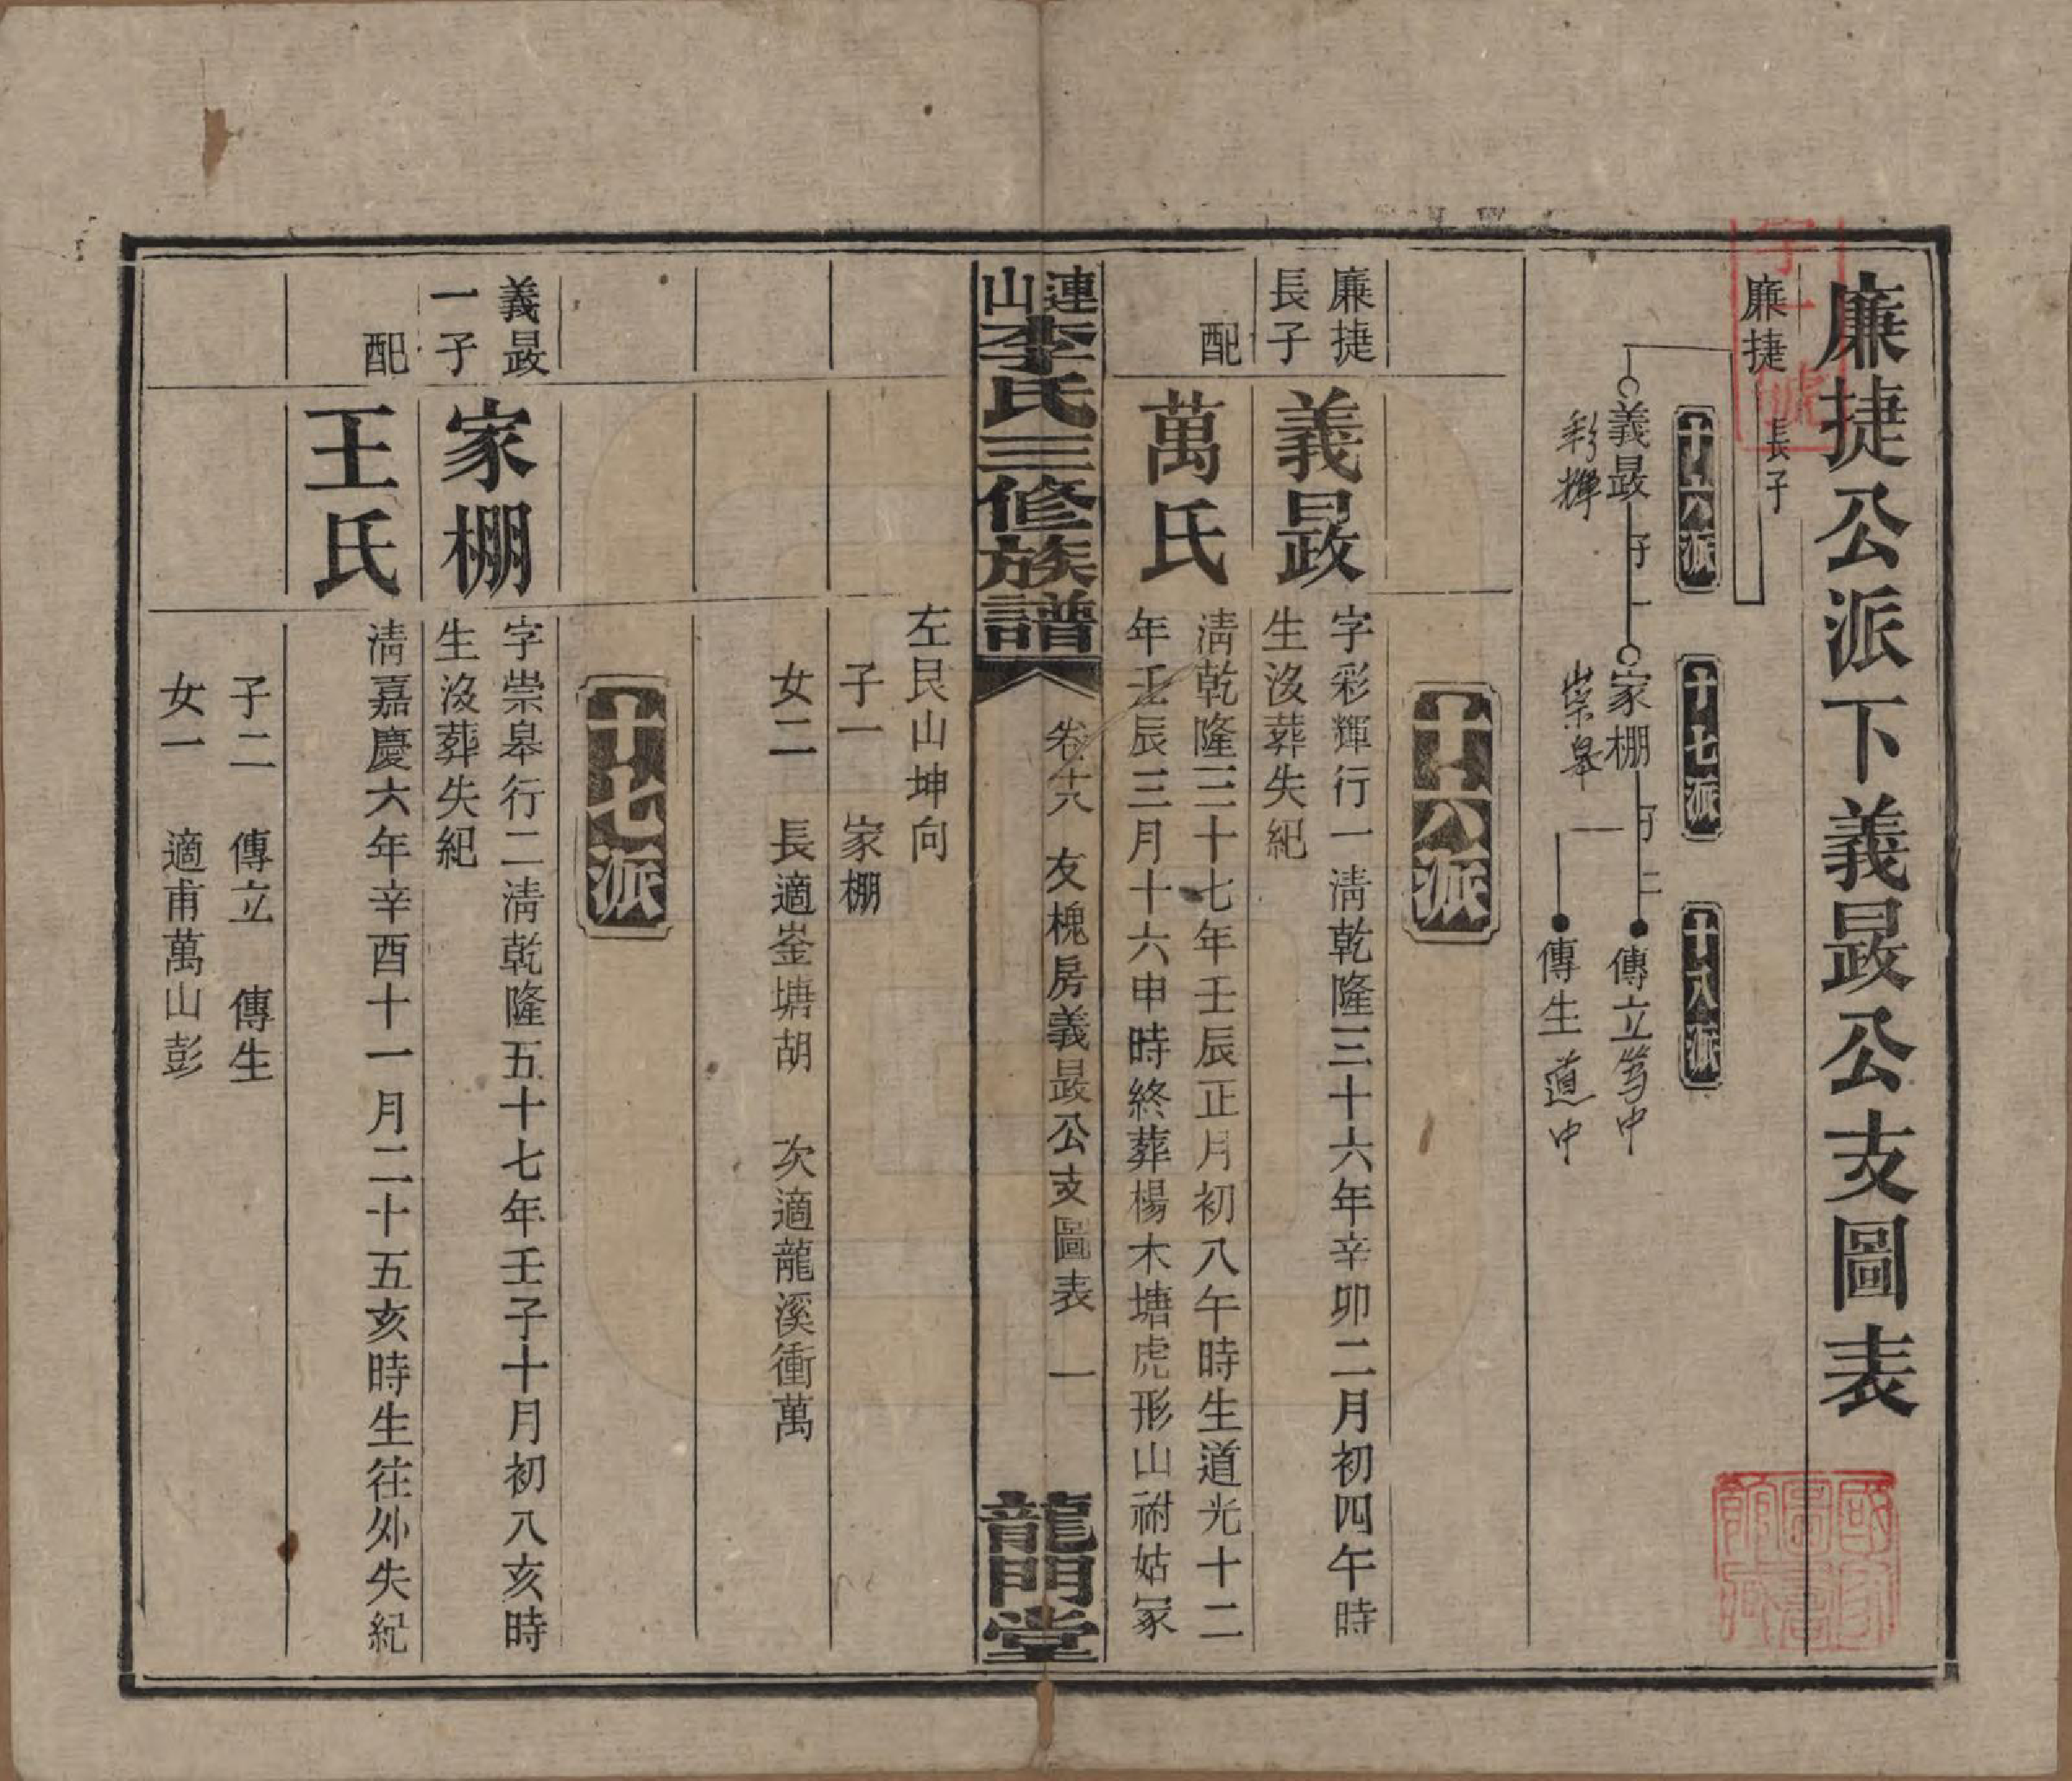 廉捷公派下義晸公支圖表
廉捷
長子
十六派
義晸
彩輝
子一
十七派
家棚
崇皋
子二
十八派
傳立
篤中
傳生
道中
十六派
廉捷
長子
義晸
字彩輝行一淸乾隆三十六年辛卯二月初四午時
生沒葬失紀
配
萬氏
淸乾隆三十七年壬辰正月初八午時生道光十二
年壬辰三月十六申時終葬楊木塘虎形山祔姑冢
連山李氏三修族譜
友槐房義晸公支圖表
一
龍門堂
左艮山坤向
子一 家棚
女二 長適崟塘胡 次適龍溪衝萬
十七派
義晸
一子
家棚
字崇皋行二淸乾隆五十七年壬子十月初八亥時
生沒葬失紀
配
王氏
淸嘉慶六年辛酉十一月二十五亥時生往外失紀
子二 傳立 傳生
女一 適甫萬山彭